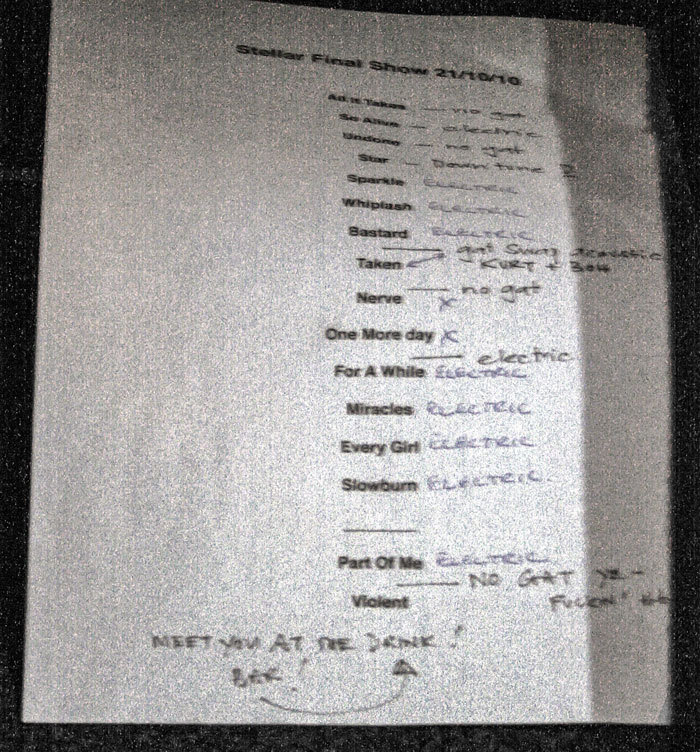 Stellar Final Show 21/10/10
All It Takes — no gat
So Alive — electric
Undone — no gat
Star — Down tune
Sparkle ELECTRIC
Whiplash ELECTRIC
Bastard ELECTRIC
gat Swap acoustic
Taken KURT + Boh
Nerve x — no gat
One More day x
— electric
For A While ELECTRIC
Miracles ELECTRIC
Every Girl ELECTRIC
Slowburn ELECTRIC.
Part Of Me ELECTRIC
— NO GAT YE-
Violent FUCKN!
MEET YOU AT THE DRINK!
BAR!